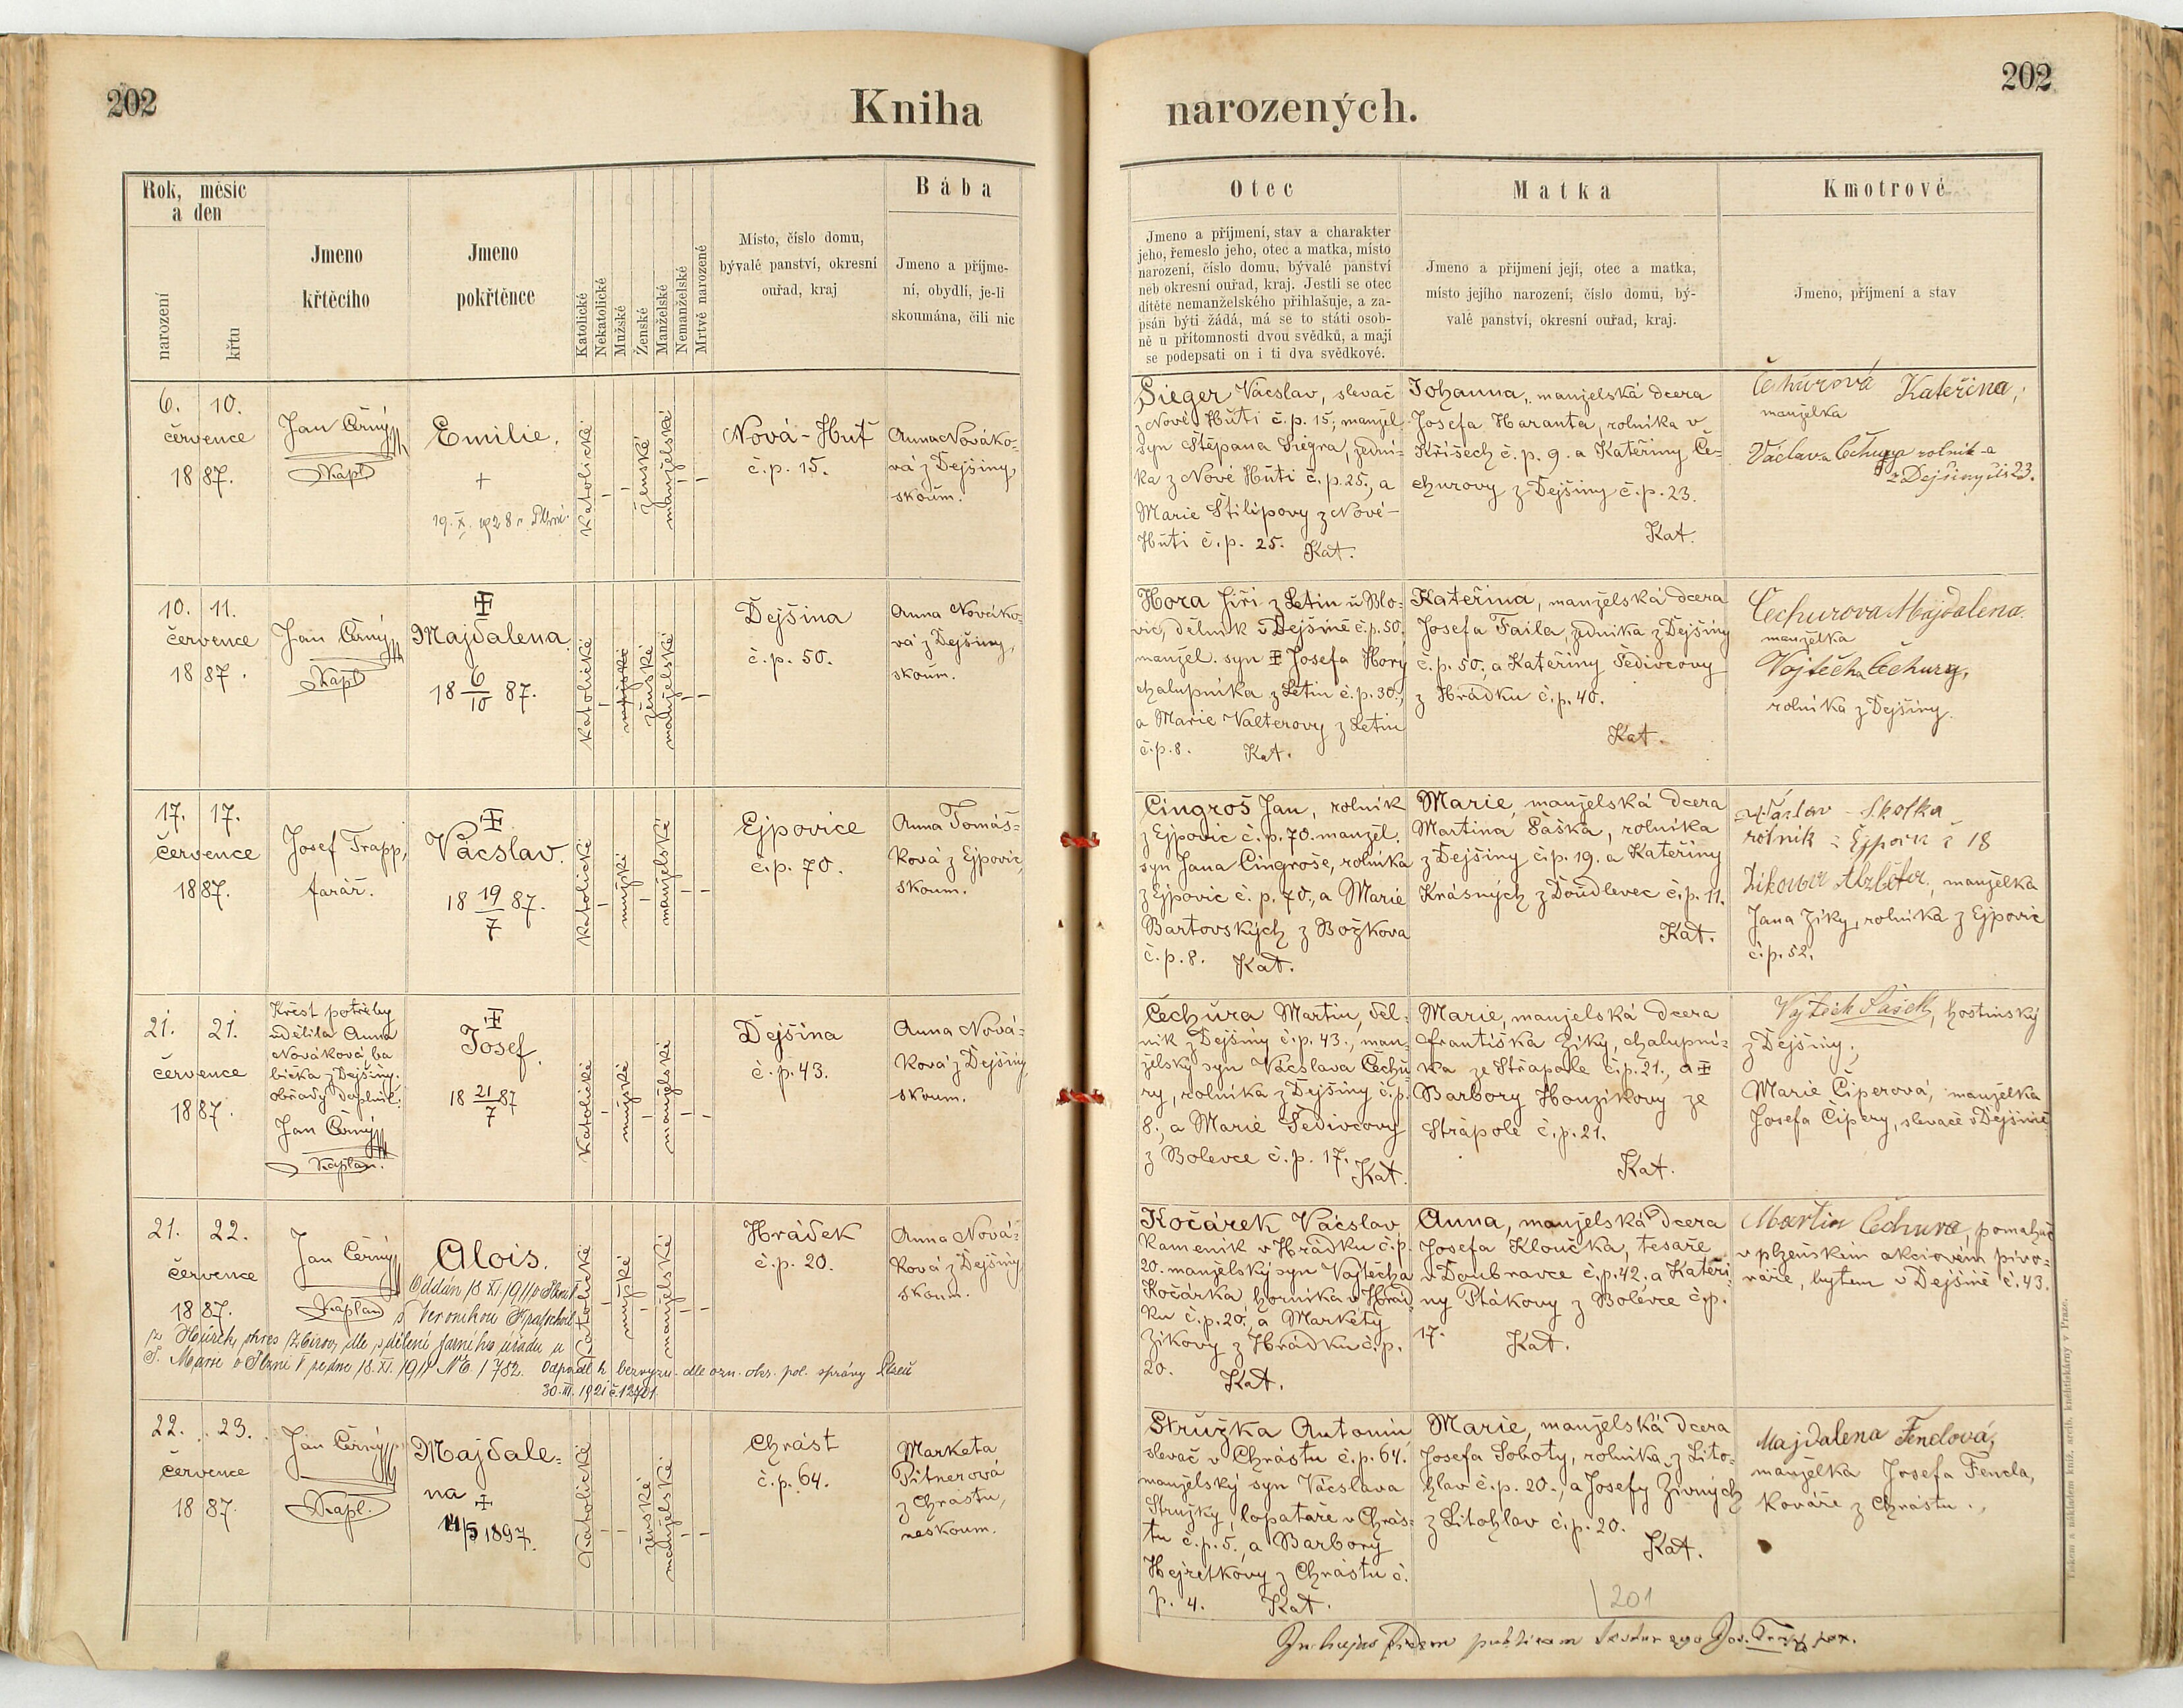 202
Kniha
narozených.
202
Rok, měsíc
a den
narození
křtu
Jmeno
křtěcího
Jmeno
pokřtěnce
Katolické
Nekatolické
Mužské
Ženské
Manželské
Nemanželské
Mrtvě narozené
Místo, číslo domu,
bývalé panství, okresní
ouřad, kraj
Bába
Jmeno a příjme-
ní, obydlí, je-li
skoumána, čili nic
Otec
Jmeno a příjmení, stav a charakter
jeho, řemeslo jeho, otec a matka, místo
narození, číslo domu, bývalé panství
neb okresní ouřad, kraj. Jestli se otec
dítěte nemanželského přihlašuje, a za-
psán býti žádá, má se to státi osob-
ně u přítomnosti dvou svědků, a mají
se podepsati on i ti dva svědkové.
Matka
Jmeno a příjmení její, otec a matka,
místo jejího narození, číslo domu, bý-
valé panství, okresní ouřad, kraj.
Kmotrové
Jmeno, příjmení a stav
6. 10.
července
1887.
Jan Černý
Kapl
Emilie.
+
19. X. 1928 v Plzni.
Katolické
ženské
manželské
Nová-Huť
č.p. 15.
Anna Nováko-
vá z Dejšiny,
skoum.
Sieger Vácslav, slevač
z Nové Huti č.p. 15, manžel.
syn Štěpana Siegra, zední-
ka z Nové Huti č.p. 25., a
Marie Štilipovy z Nové-
Huti č.p. 25. Kat.
Johanna, manželská dcera
Josefa Haranta, rolníka v
Kříšech č.p. 9. a Kateřiny Če-
churovy z Dejšiny č.p. 23.
Kat.
Čechurová Kateřina,
manželka
Václava Čechury rolník-a
z Dejšiny čís 23.
10. 11.
července
1887.
Jan Černý
Kapl
Majdalena.
18 6/10 87.
Katolické
mužské
ženské
manželské
Dejšina
č.p. 50.
Anna Nováko-
vá z Dejšiny,
skoum.
Hora Jiří z Letin u Blo-
vic, dělník v Dejšině č.p. 50.
manžel. syn Josefa Hory
chalupníka z Letin č.p. 30.,
a Marie Valterovy z Letin
č.p. 8. Kat.
Kateřina, manželská dcera
Josefa Faila, zedníka z Dejšiny
č.p. 50., a Kateřiny Šedivcovy
z Hrádku č.p. 40.
Kat.
Čechurova Majdalena.
manželka
Vojtěcha Čechury,
rolníka z Dejšiny.
17. 17.
července
1887.
Josef Trapp,
farář.
Vácslav.
18 19/7 87.
Katolické
mužské
manželské
Ejpovice
č.p. 70.
Anna Tomáš-
ková z Ejpovic,
skoum.
Cingroš Jan, rolník
z Ejpovic č.p. 70. manžel.
syn Jana Cingroše, rolníka
z Ejpovic č. p. 70., a Marie
Bartovských z Božkova
č.p. 8. Kat.
Marie, manželská dcera
Martina Šaška, rolníka
z Dejšiny č.p. 19. a Kateřiny
Krásných z Doudlevec č.p. 11.
Kat.
Václav Skolka
rolník z Ejpovic č 18
Zikova Alžběta, manželka
Jana Ziky, rolníka z Ejpovic
č.p. 52.
21. 21.
července
1887.
Křest potřeby
udělila Anna
Nováková, ba
bička z Dejšiny.
obřady doplnil:
Jan Černý
Kaplan.
Josef.
18 21/7 87
Katolické
mužské
manželské
Dejšina
č.p. 43.
Anna Nová-
ková z Dejšiny
skoum.
Čechura Martin, děl-
ník z Dejšiny č.p. 43., man-
želský syn Vácslava Čechu-
ry, rolníka z Dejšiny č.p.
8., a Marie Šedivcovy
z Bolevce č.p. 17. Kat.
Marie, manželská dcera
Františka Ziky, chalupní-
ka ze Střapole č.p. 21., a
Barbory Houzikovy ze
Strápole č.p. 21.
Kat.
Vojtěch Šašek, hostinský
z Dejšiny.
Marie Čiperová, manželka
Josefa Čipery, slevače v Dejšině.
21. 22.
července
1887.
Jan Černý
Kaplan
Alois.
Oddán 18 XI. 1911 v Plzni
s Veronikou
z Hůrek, okres Zbirov, dle sdělení farního úřadu u
P. Marie v Plzni ze dne 18. XI. 1911 No. 1782. Odpadl k bezvyzn. dle ozn. okr. pol. správy Plzeň
30. III. 1921 č. 12701.
Katolické
mužské
manželské
Hrádek
č.p. 20.
Anna Nová-
ková z Dejšiny,
skoum.
Kočárek Vácslav
kameník v Hrádku č.p.
20. manželský syn Vojtěcha
Kočárka, horníka v Hrád-
ku č.p. 20., a Markéty
Zikovy z Hrádku č.p.
20. Kat.
Anna, manželská dcera
Josefa Kloučka, tesaře
v Doubravce č.p. 42. a Kateři-
ny Ptákovy z Bolevce č.p.
17. Kat.
Martin Čechura, pomahač
v plzeňském akciovém pivo-
váře, bytem v Dejšině č. 43.
22. 23.
července
1887.
Jan Černý
Kapl.
Majdale-
na
+
14/5 1897.
Katolické
ženské
manželské
Chrást
č.p. 64.
Marketa
Pitnerová
z Chrástu,
neskoum.
Stružka Antonín,
slevač v Chrástu č.p. 64.
manželský syn Vácslava
Stružky, lopatáře v Chrás-
tu č.p. 5. a Barbory
Hejretkovy z Chrástu č.
p. 4. Kat.
Marie, manželská dcera
Josefa Soboty, rolníka z Lito-
hlav č.p. 20., a Josefy Živných
z Litohlav č.p. 20.
Kat.
Majdalena Fenclová,
manželka Josefa Fencla,
kováře z Chrástu.
201
In hujus fidem publicam testor ego Jos. Trapp par.